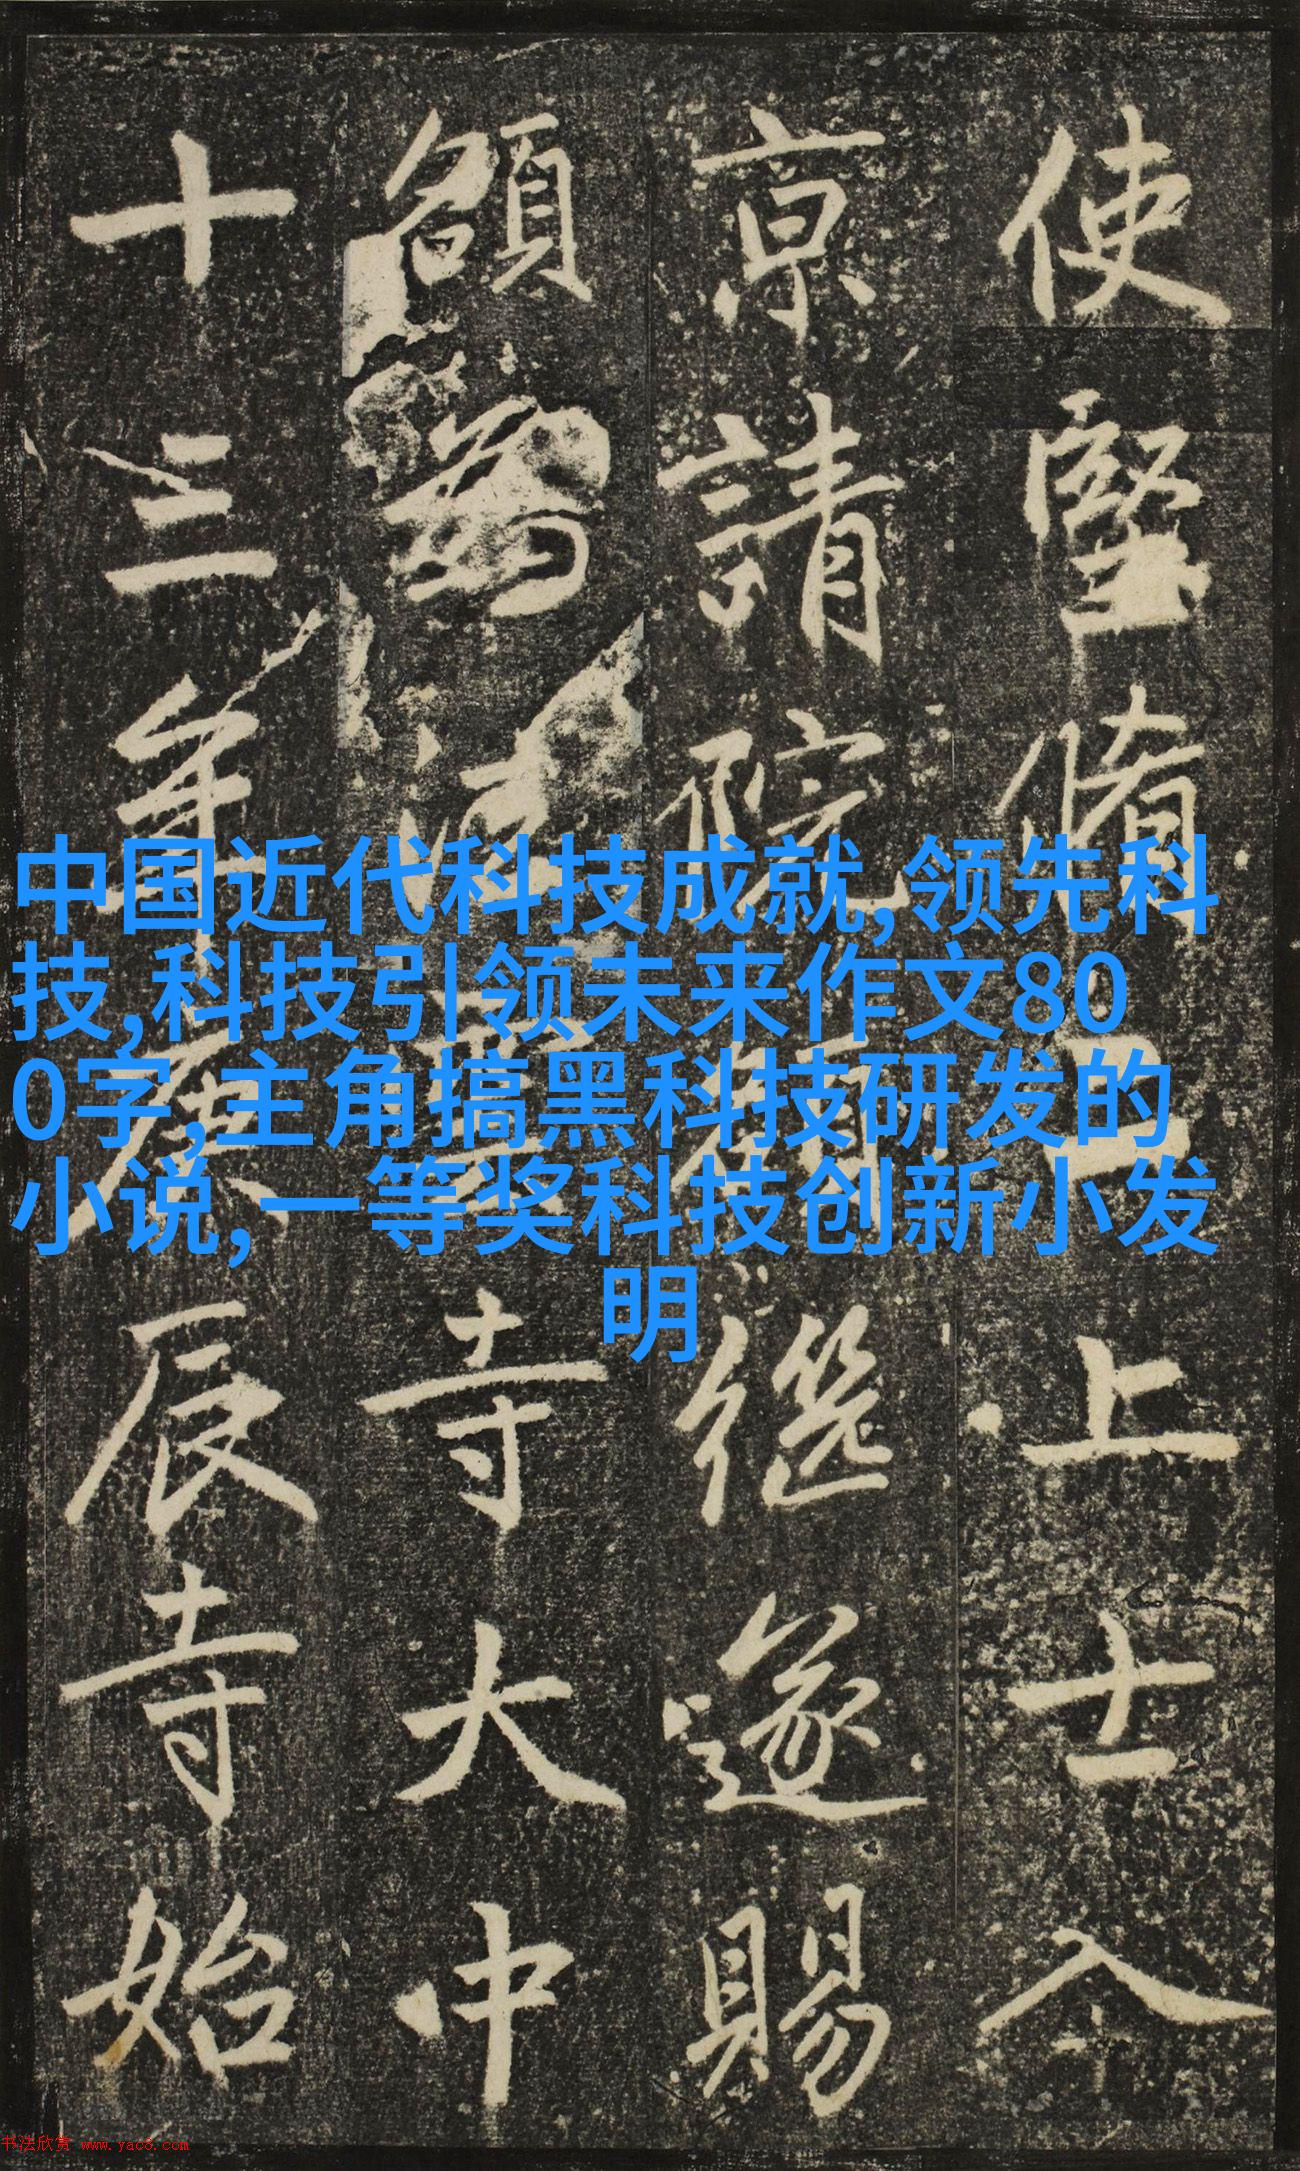 使堅上士入
京請院額繼遂賜
額為寺大中
十三年庚辰寺始
中国近代科技成就,领先科
技,科技引领未来作文80
0字,主角搞黑科技研发的
小说,一等奖科技创新小发
明
书法欣赏 www.yac8.com